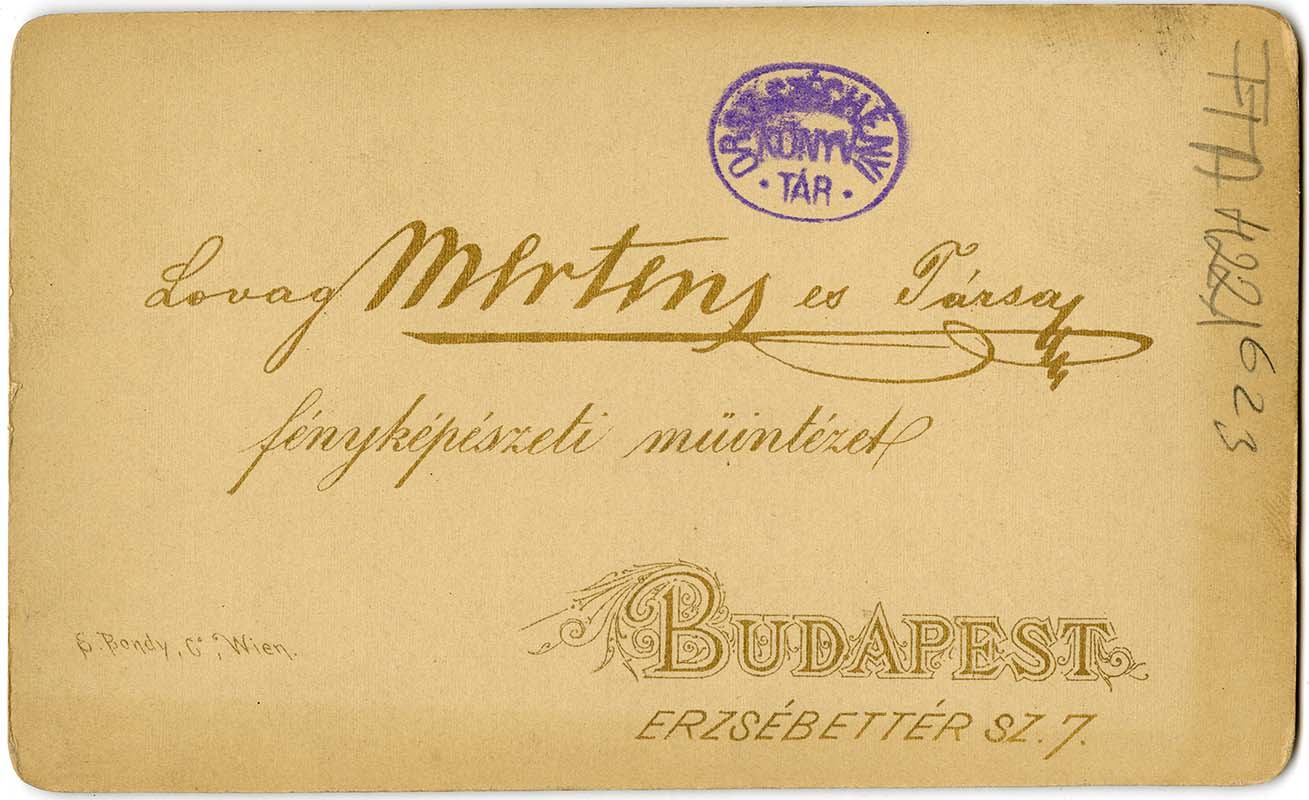 ORSZ. SZÉCHÉNYI
KÖNYV
TÁR
Lovag Mertens es Társa
fényképészeti müintézet
BUDAPEST
ERZSÉBETTÉR SZ. 7.
S. Bondy, Cº, Wien.
623